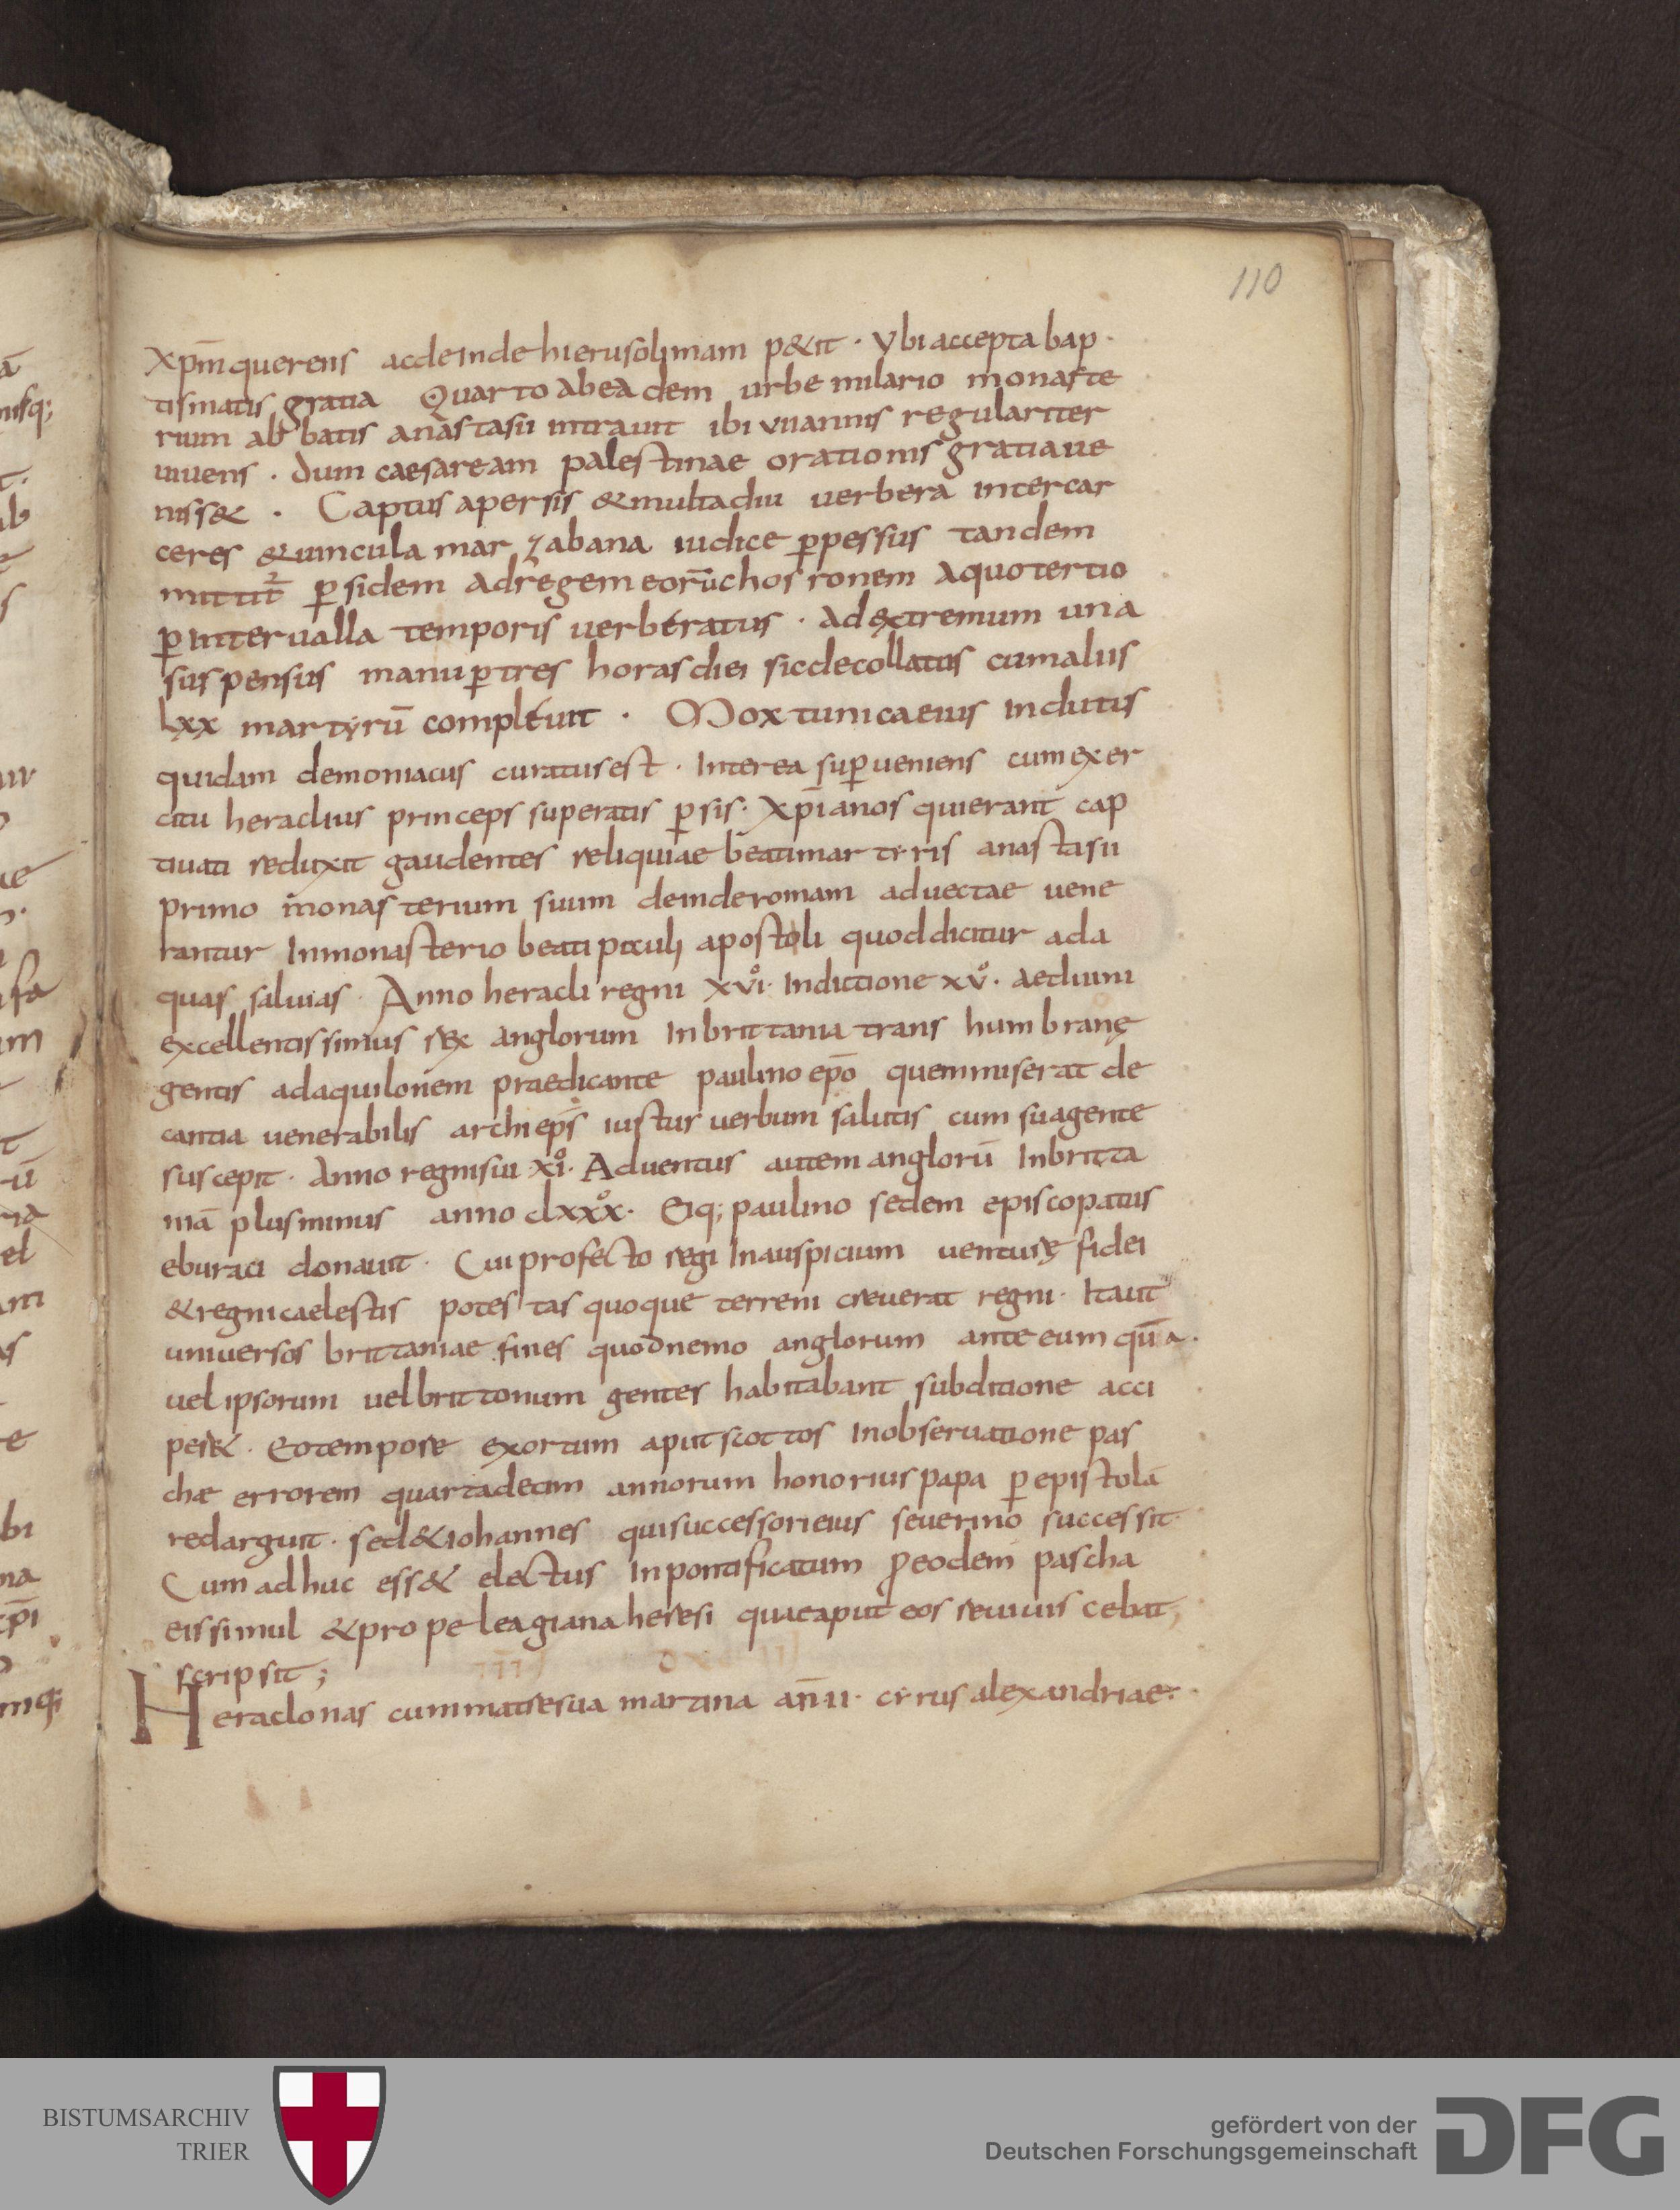 110
xp̄m querens acdeinde hierusolimam p&it · Vbi accepta bap ·
tismatis gratia Quarto abea dem urbe milario monaste
rium ab batis anastasii intrauit ibi vii annis regulariter
uiuens · dum caesaream palestinae orationis gratia ue
niss& · Captus apersis & multa diu uerbera inter car
ceres & uincula mar zabana iudice ꝑpessus tandem
mittit̄ ꝑsidem ad regem eorū chosronem Aquo tertio
ꝑ interualla temporis uerberatus · ad extremum una
suspensus manu ꝑ tres horas diei sic decollatus cum aliis
lxx martyrū compleuit · Mox tunica eius indutis
quidam demoniacus curatus est · Interea suꝑueniens cum exer
citu heraclius princeps superatis ꝑsis · Xp̄ianos qui erant cap
tiuati reduxit gaudentes reliquiae beati martyris anastasii
primo monasterium suum deinde romam aduectae uene
rantur In monasterio beati pauli apostoli quod dicitur ada
quas saluias · Anno heracli regni xvi° · Indictione xv° · aeduini
excellentissimus rex anglorum In brittania trans humbranę
gentis ad aquilonem praedicante paulino ep̄o quem miserat de
cantia uenerabilis archiep̄s iustus uerbum salutis cum sua gente
suscepit · Anno regni sui xi° · Aduentus autem anglorū In britta
niā plus minus anno clxxx° · Eiq; paulino sedem episcopatus
eburaci donauit · Cui profecto regi In auspicium uenturę fidei
& regni caelestis potestas quoque terreni creuerat regni · Ita ut
uniuersos brittaniae fines quod nemo anglorum ante eum qua ·
uel ipsorum uel brittonum gentes habitabant subditione acci
per& · Eo tempore exortum aput scottos In obseruatione pas
chæ errorem quartadecim annorum honorius papa ꝑ epistolā
redarguit · sed & iohannes qui successori eius seuerino successit ·
Cum adhuc ess& electus In pontificatum ꝓ eodem pascha
eis simul & pro pe leagiana heresi quae aput eos reuiuis cebat,
scripsit ;
Heraclonas cum matre sua martina an̄ ii · cyrus alexandriae ·
BISTUMSARCHIV
TRIER
gefördert von der
Deutschen Forschungsgemeinschaft
DFG